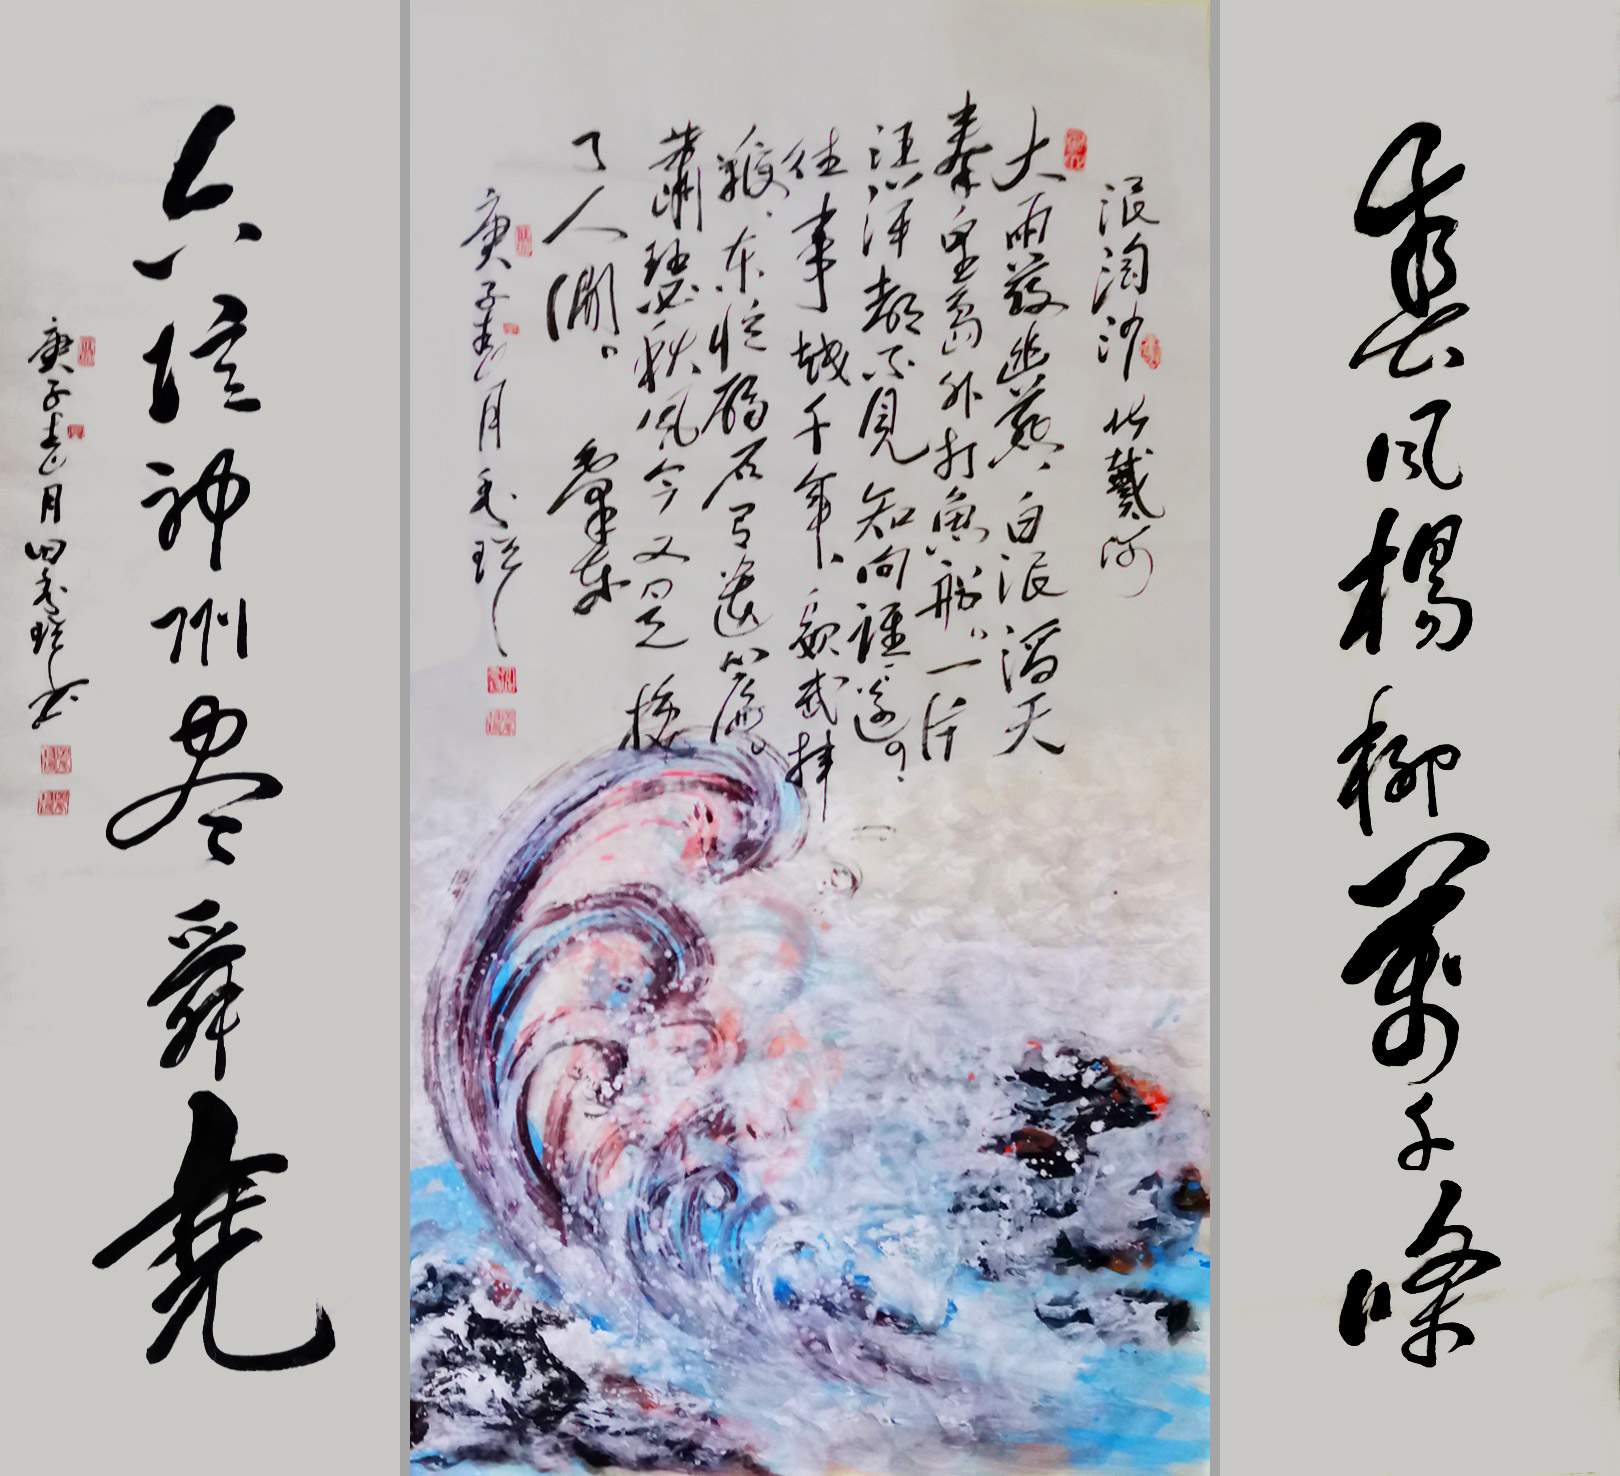 春风楊柳萬千條
浪淘沙 北戴河
大雨落幽燕、白浪滔天
秦皇岛外打魚船。一片
汪洋都不見知向誰邊?
往事越千年、魏武揮
鞭、东临碣石有遗篇。
蕭瑟秋风今又是 換
了人間。
庚子春月
六億神州尽舜堯
庚子春月田